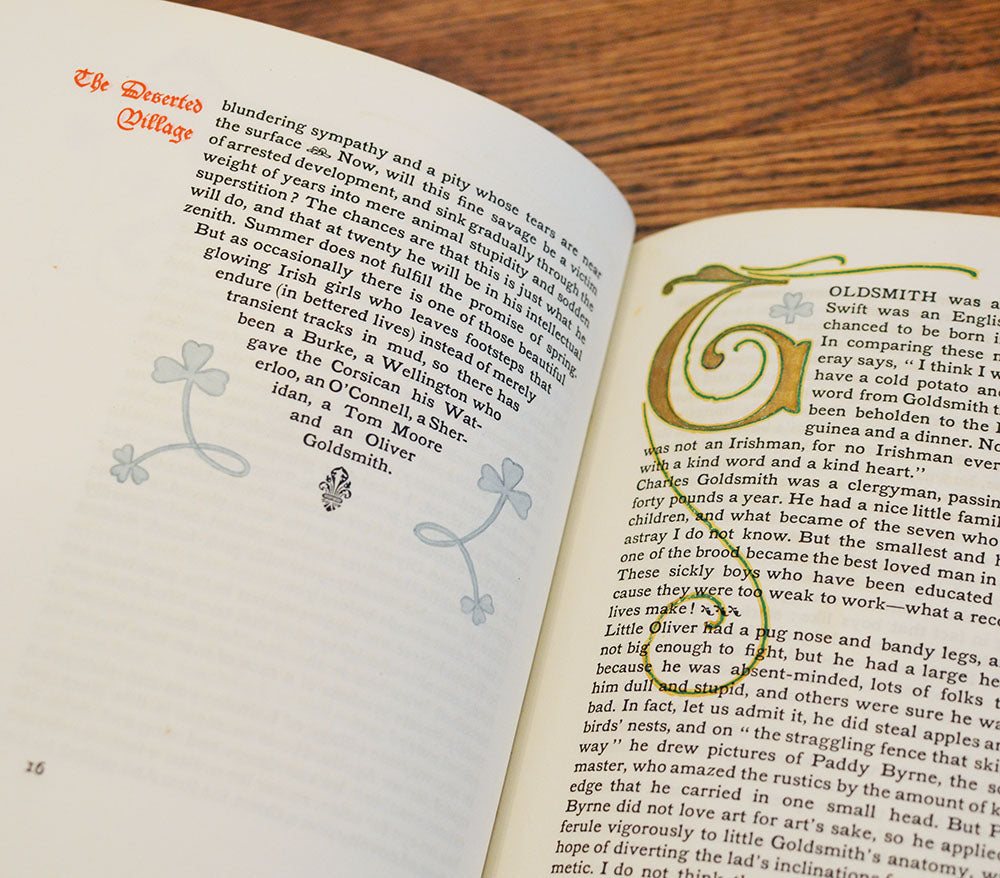 The Deserted
Village
blundering sympathy and a pity whose tears are near
the surface Now, will this fine savage be a victim
of arrested development, and sink gradually through the
weight of years into mere animal stupidity and sodden
superstition? The chances are that this is just what he
will do, and that at twenty he will be in his intellectual
zenith. Summer does not fulfill the promise of spring.
But as occasionally there is one of those beautiful
glowing Irish girls who leaves footsteps that
endure (in bettered lives) instead of merely
transient tracks in mud, so there has
been a Burke, a Wellington who
gave the Corsican his Wat-
erloo, an O'Connell, a Sher-
idan, a Tom Moore
and an Oliver
Goldsmith.
16
GOLDSMITH was a
Swift was an English
chanced to be born i
In comparing these
eray says, " I think I w
have a cold potato and
word from Goldsmith t
been beholden to the
guinea and a dinner. No
was not an Irishman, for no Irishman ever
with a kind word and a kind heart."
Charles Goldsmith was a clergyman, passin
forty pounds a year. He had a nice little famil
children, and what became of the seven who
astray I do not know. But the smallest and h
one of the brood became the best loved man in
These sickly boys who have been educated
cause they were too weak to work—what a reco
lives make!
Little Oliver had a pug nose and bandy legs, a
not big enough to fight, but he had a large he
because he was absent-minded, lots of folks t
him dull and stupid, and others were sure he wa
bad. In fact, let us admit it, he did steal apples a
birds' nests, and on " the straggling fence that ski
way " he drew pictures of Paddy Byrne, the s
master, who amazed the rustics by the amount of k
edge that he carried in one small head. But P
Byrne did not love art for art's sake, so he applied
ferule vigorously to little Goldsmith's anatomy, w
hope of diverting the lad's inclinations
metic. I do not think the